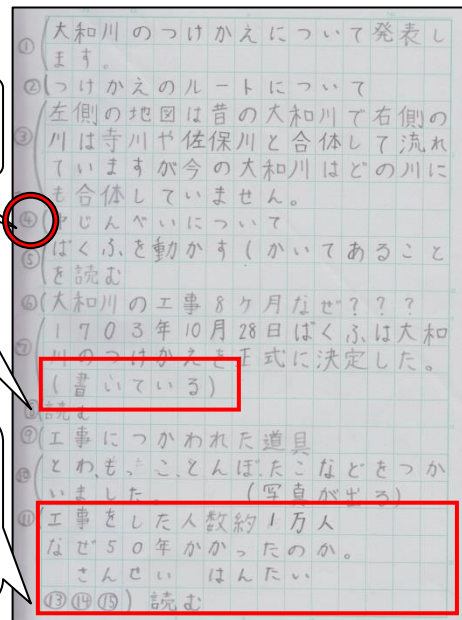 ①大和川のつけかえについて発表し
ます。
②つけかえのルートについて
左側の地図は昔の大和川で右側の
③川は寺川や佐保川と合体して流れ
ていますが今の大和川はどの川に
も合体していません。
④じんべいについて
⑤ばくふを動かす(かいてあること
を読む
⑥大和川の工事8ケ月なぜ???
1703年10月28日ばくふは大和
⑦川のつけかえを正式に決定した。
(書いている)
⑧読む
⑨工事につかわれた道具
⑩とわ、もっこ、とんぼ、たこなどをつか
いました。(写真が出る)
⑪工事をした人数約1万人
なぜ50年かかったのか。
さんせい はんたい
⑬⑭⑮)読む